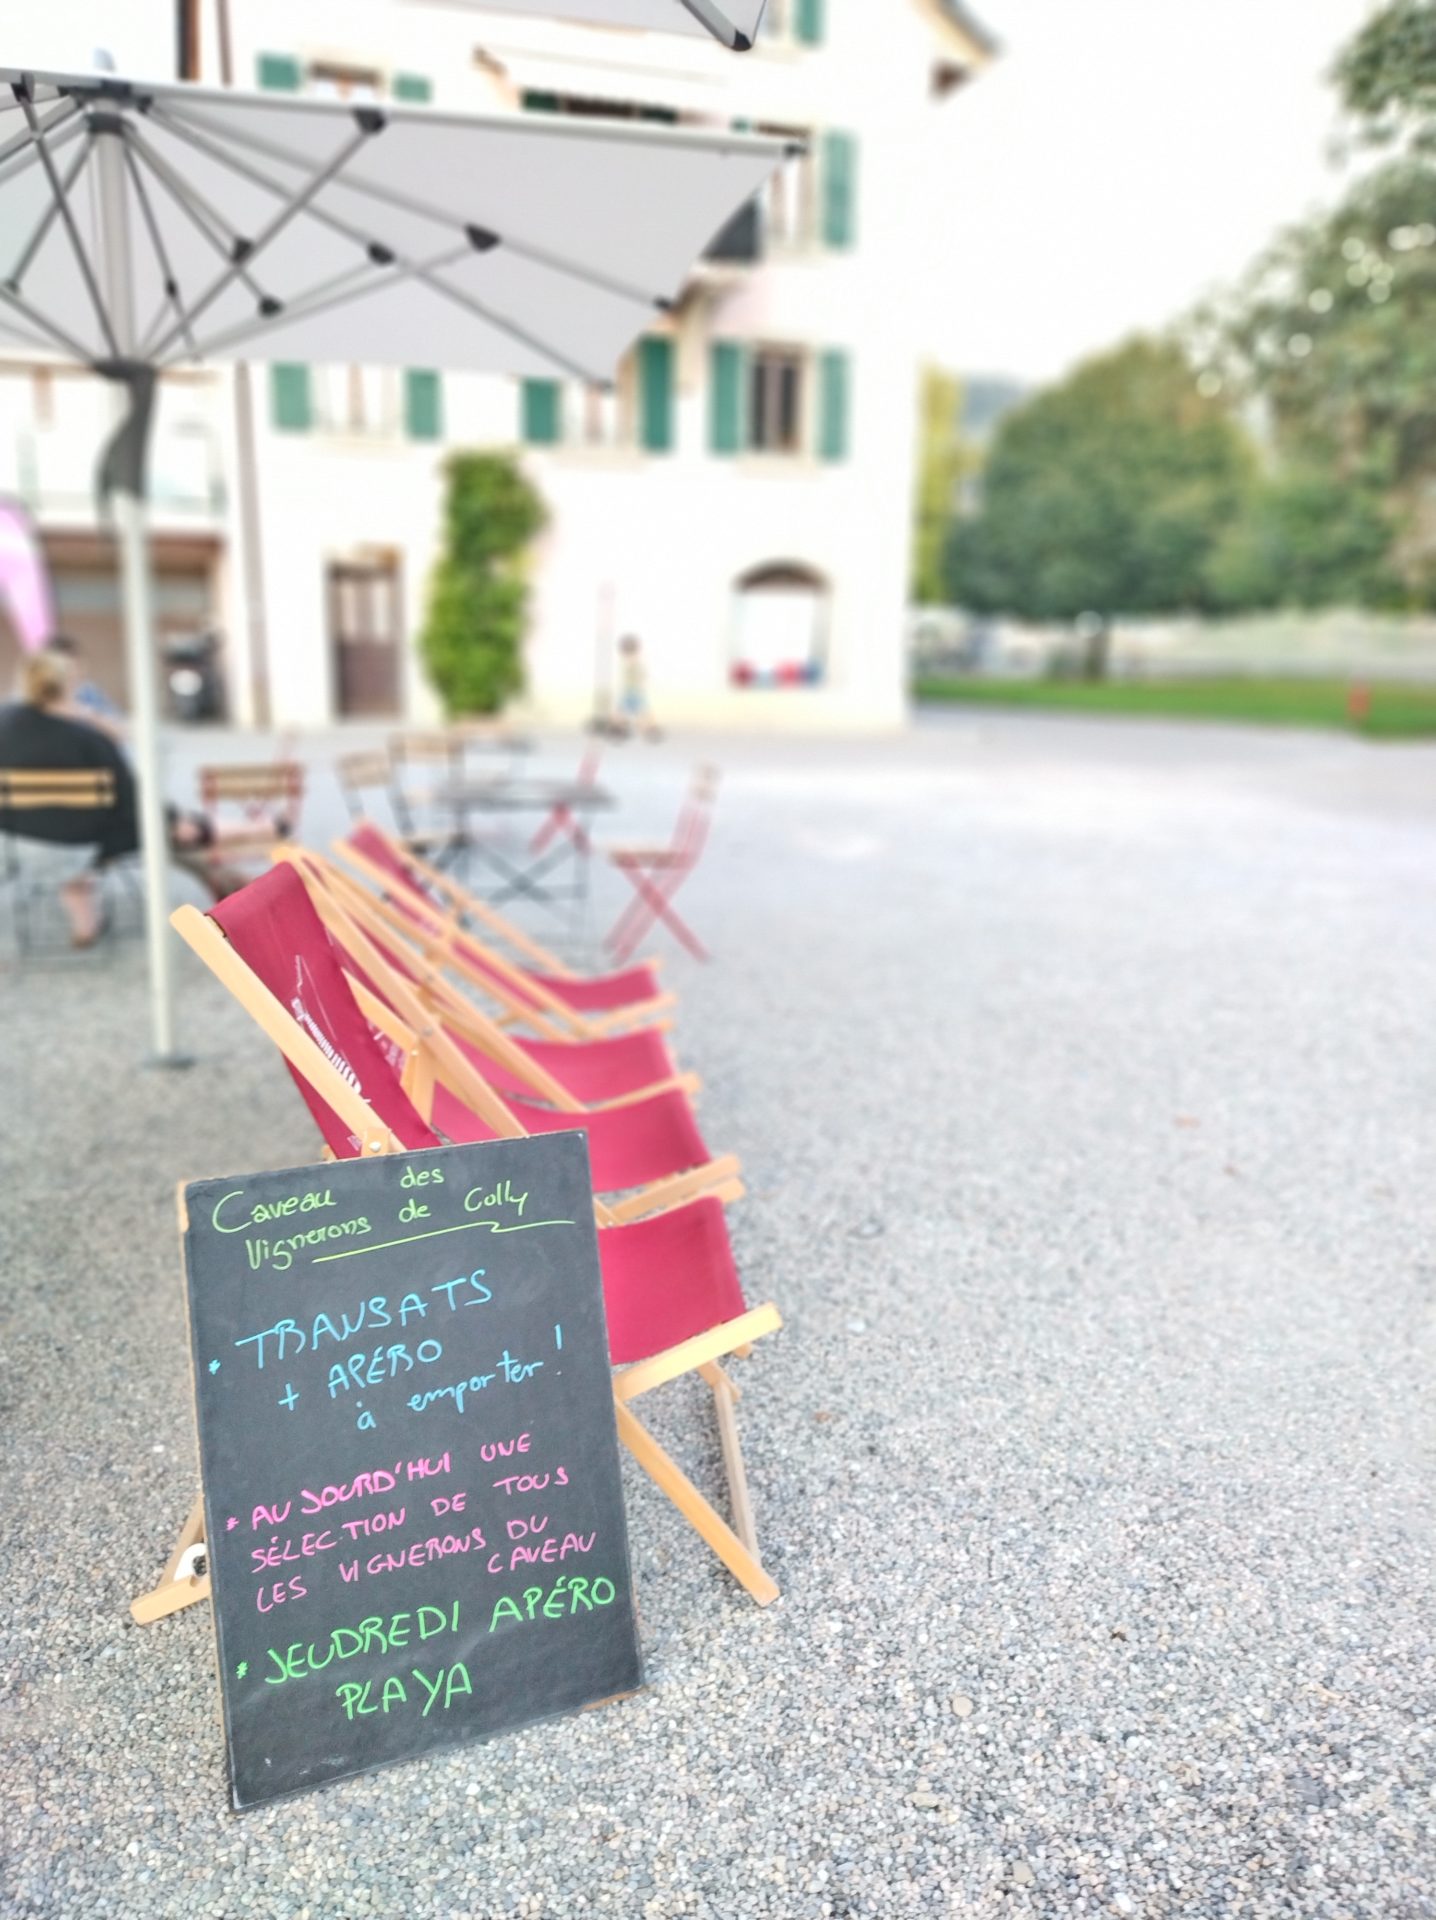 Caveau des
Vignerons de Colly
* TRANSATS
+ APÉRO
à emporter !
* AUJOURD'HUI UNE
SÉLECTION DE TOUS
LES VIGNERONS DU
CAVEAU
* JEUDREDI APÉRO
PLAYA